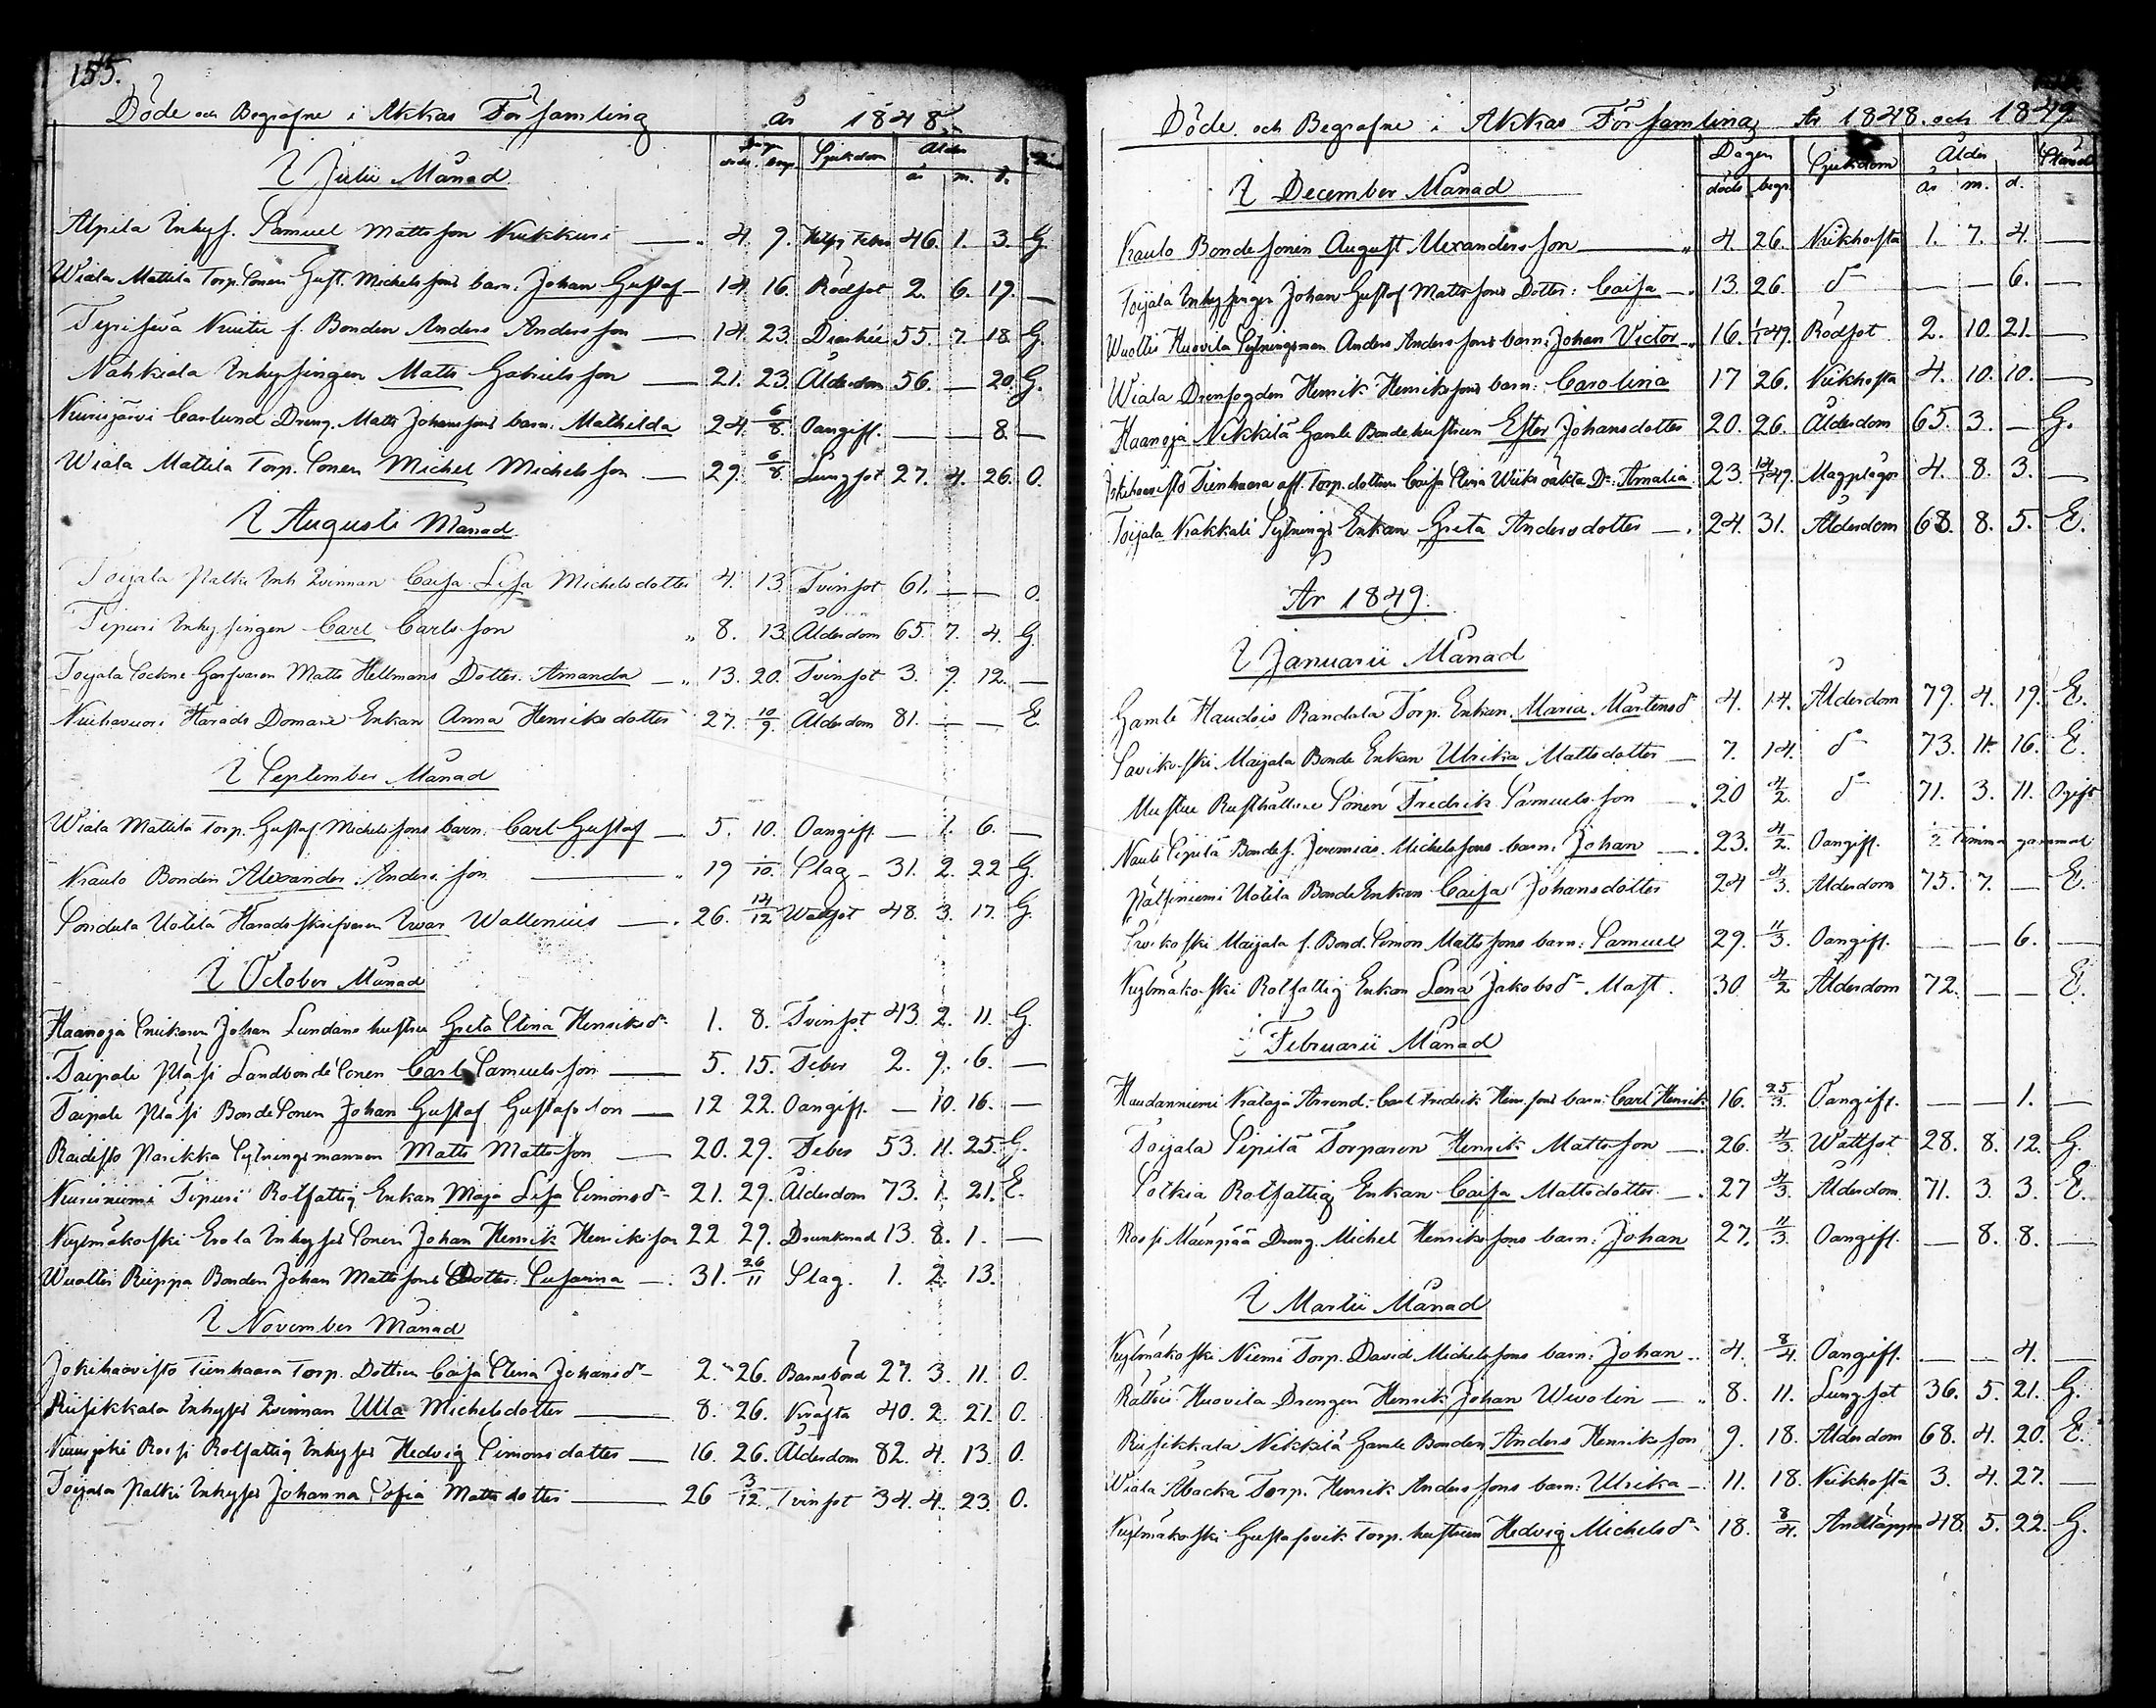 155.
Döde och Begrafne i Akkas Församling år 1848
Dagen Sjukdom Ålder
döds. begr. år m. d.
I Julii Månad
Alpila Inhys. Samuel Mattsson Kukkuri 4. 9. Feber 46. 1. 3. G.
Wiala Mattila Torp. Sonen Gust. Michelssons barn: Johan Gustaf 14. 16. Rödsot 2. 6. 19. —
f. Bonden Anders Andersson 14. 23. Diarhée 55. 7. 18. G.
Nahkiala Inhysingen Matts Gabrielsson 21. 23. Ålderdom 56. — 20. G.
Kurisjärvi Carlund Dreng. Matts Johanssons barn: Mathilda 24. 6/8. Oangift. — — 8. —
Wiala Mattila Torp. Sonen Michel Michelsson 29. 6/8. Lungsot 27. 4. 26. O.
I Augusti Månad
Toijala Palki Inh Qvinnan Caisa Lisa Michelsdotter 4. 13. Tvinsot 61. — — O.
Tipuri Inhysingen Carl Carlsson „ 8. 13. Ålderdom 65. 7. 4. G.
Toijala Sockne Garfvaren Matts Hellmans Dotter. Amanda 13. 20. Tvinsot 3. 9. 12. —
Härads Domare Enkan Anna Henriksdotter 27. 10/9. Ålderdom 81. — — E.
I September Månad
Wiala Mattila Torp. Gustaf Michelssons barn: Carl Gustaf 5. 10. Oangift — 1. 6. —
Kraulo Bonden Alexander Andersson 19 /10. Slag 31. 2. 22 G.
Sondula Uotila Häradsskrifvaren Iwar Wallenius 26. 14/12 Wattsot 48. 3. 17. G.
I October Månad
Haanoja Snikaren Johan Lundans hustru Greta Stina Henriksdr 1. 8. Tvinsot 43. 2. 11. G.
Taipale Pläsi Landbonde Sonen Carl Samuelsson 5. 15. Feber 2. 9. 6. —
Taipale Pläsi Bonde Sonen Johan Gustaf Gustafsson 12 22. Oangift. — 10. 16. —
Raidisto Parikka Sytningsmannen Matts Mattsson 20. 29. Feber 53. 11. 25. G.
Kurisniemi Tipuri Rotfattig Enkan Maja Lisa Simonsdr 21. 29. Ålderdom 73. 1. 21. E.
Kylmäkoski Erola Inhyses Sonen Johan Henrik Henriksson 22 29. Drunknad 13. 8. 1. —
Wualtis Riippa Bonden Johan Mattssons Dotter: Susanna 31. 26/11 Slag. 1. 2. 13.
I November Månad
Jokihaavisto Tienhaara Torp. Dottren Caisa Stina Johansdr 2. 26. Barnsbörd 27. 3. 11. O.
Riisikkala Inhyses Qvinnan Ulla Michelsdotter 8. 26. Kräfta 40. 2. 21. O.
Rossi Rotfattig Inhyses Hedvig Simonsdotter 16. 26. Ålderdom 82. 4. 13. O.
Toijala Palki Inhyses Johanna Sofia Mattsdotter 26 3/12. Tvinsot 34. 4. 23. O.
Döde och Begrafne i Akkas Församling År 1848. och 1849.
Dagen Sjukdom Ålder Stånd
döds begr. år m. d.
I December Månad
Kraulo Bondesonen August Alexandersson „ 4. 26. Kikhosta 1. 7. 4. —
Toijala Inhysingen Johan Gustaf Mattssons Dotter: Caisa 13. 26. do — — 6. —
Wualtis Huovila Sytningsman Anders Anderssons barn: Johan Victor 16. 1/1 49. Rödsot 2. 10. 21. —
Wiala Drensfogden Henrik Henrikssons barn: Carolina 17 26. Kikhosta 4. 10. 10. —
Haanoja Nikkilä Gamle Bondehustrun Ester Johansdotter 20. 26. Ålderdom 65. 3. — G.
Jokihaavisto Tienhaara afl. Torp. dottren Caisa Stina Wiiks oäkta Dr: Amalia 23. 14/1 49. Magplågor 4. 8. 3. —
Toijala Krakkali Sytnings Enkan Greta Andersdotter 24. 31. Ålderdom 68. 8. 5. E.
År 1849.
I Januarii Månad
Gamle Haudois Randala Torp. Enkan. Maria Mårtensdr 4. 14. Ålderdom 79. 4. 19. E.
Savikoski Maijala Bonde Enkan Ulrika Mattsdotter 7. 14. do 73. 11. 16. E.
Rusthållare Sonen Fredrik Samuelsson 20 4/2. do 71. 3. 11. Ogift
Sipilä Bondes. Jeremias Michelssons barn: Johan 23. 4/2. Oangift. 1/2 Timma gammal
Pätsiniemi Uotila Bonde Enkan Caisa Johansdotter 24 4/3. Ålderdom 75. 7. — E.
Savikoski Maijala f. Bond. Simon Mattssons barn: Samuel 29. 11/3. Oangift. — — 6. —
Kylmäkoski Rotfattig Enkan Lena Jakobsdr Mast. 30. 4/2 Ålderdom 72. — — E.
I Februarii Månad
Haudanniemi Kalaja Arrend. Carl Fredrik Henr.sons barn: Carl Henrik 16. 25/3. Oangift. — — 1. —
Toijala Sipilä Torparen Henrik Mattsson 26. 4/3. Wattsot 28. 8. 12. G.
Sotkia Rotfattig Enkan Caisa Mattsdotter 27 4/3. Ålderdom. 71. 3. 3. E.
Rossi Mäenpää Dreng. Michel Henrikssons barn: Johan 27. 11/3. Oangift. — 8. 8. —
I Martii Månad
Kylmäkoski Niemi Torp. David Michelssons barn: Johan 4. 8/4. Oangift. — — 4. —
Rättöi Huovila Drengen Henrik Johan Uwolin 8. 11. Lungsot 36. 5. 21. G.
Riisikkala Nikkilä Gamle Bonden Anders Henriksson 9. 18. Ålderdom 68. 4. 20. E.
Wiala Abacka Torp. Henrik Anderssons barn: Ulrika 11. 18. Kikhosta 3. 4. 27. —
Kylmäkoski Gustafsvik Torp. hustrun Hedvig Michelsdr 18. 8/4. Andtäppa 48. 5. 22. G.